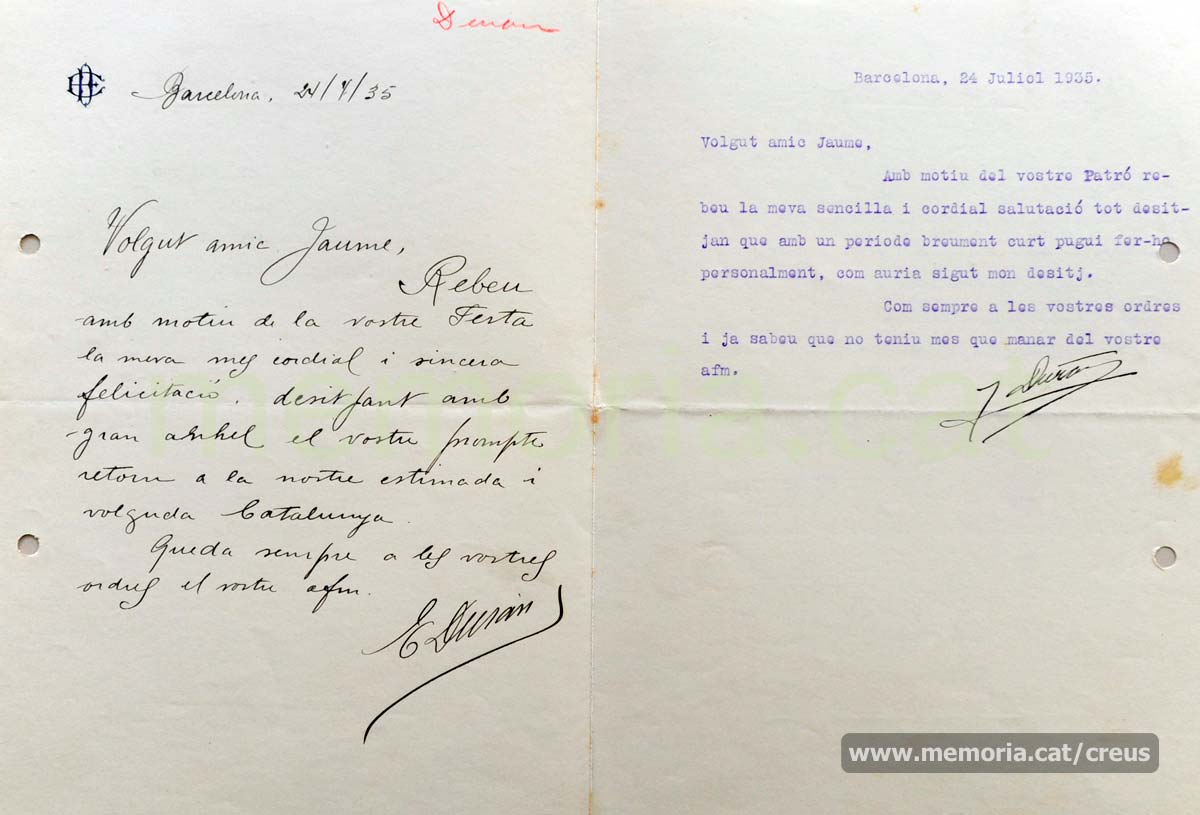 Duran
Barcelona, 24/7/35
Volgut amic Jaume,
Rebeu
amb motiu de la vostre Festa
la meva mes cordial i sincera
felicitació. desitjant amb
gran anhel el vostre prompte
retorn a la nostre estimada i
volguda Catalunya.
Queda sempre a les vostres
ordres el vostre afm.
E Duran
Barcelona, 24 Juliol 1935.
Volgut amic Jaume,
Amb motiu del vostre Patró re-
beu la meva sencilla i cordial salutació tot desit-
jan que amb un periode breument curt pugui fer-ho
personalment, com auria sigut mon desitj.
Com sempre a les vostres ordres
i ja sabeu que no teniu mes que manar del vostre
afm.
J Durán
memoria.cat
www.memoria.cat/creus